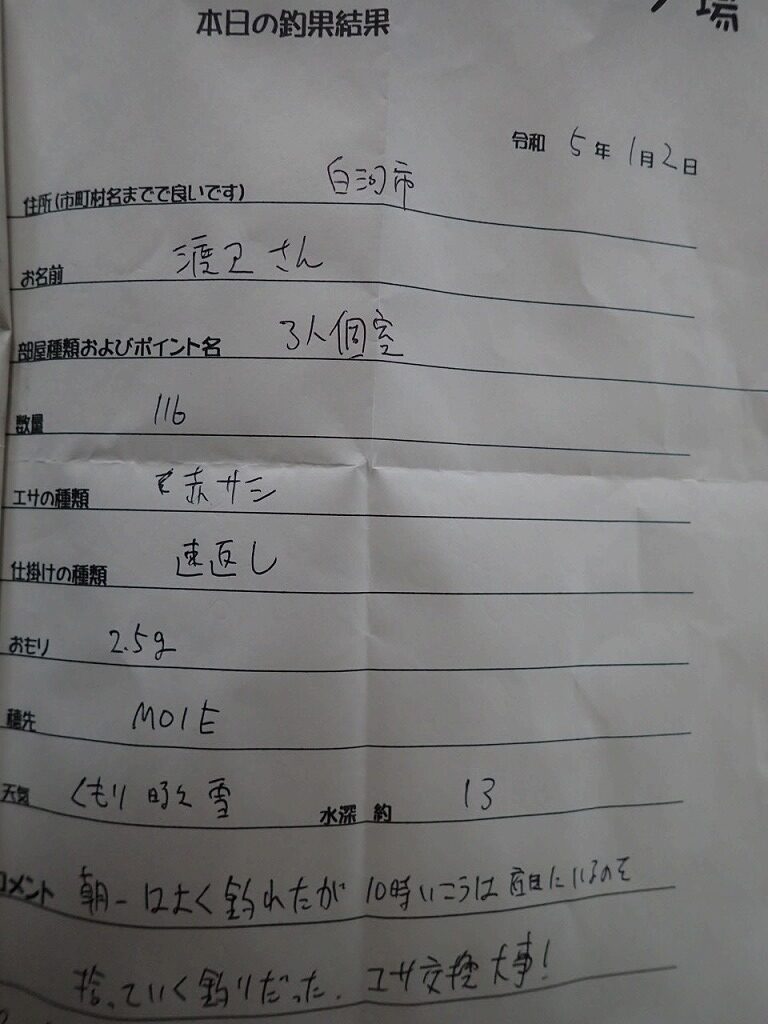 場
本日の釣果結果
令和 5年 1月2日
住所(市町村名までで良いです) 白河市
お名前 渡辺さん
部屋種類およびポイント名 3人個室
数量 116
エサの種類 赤サシ
仕掛けの種類 速返し
おもり 2.5g
穂先 M01E
天気 くもり 時々 雪 水深 約 13
コメント 朝一はよく釣れたが 10時いこうは にいるのを
捨っていく釣りだった. エサ交換大事!